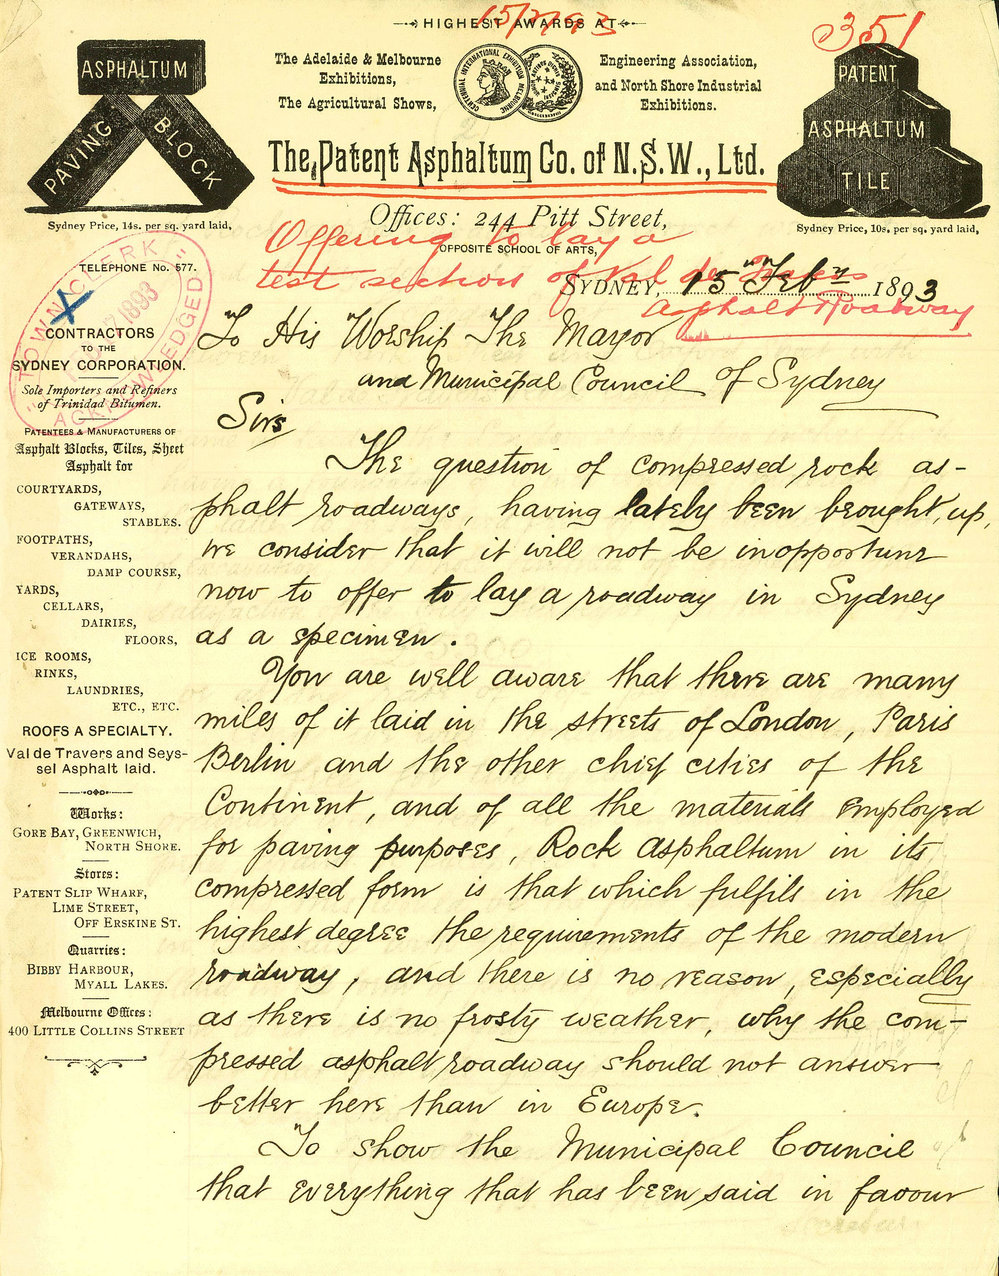 HIGHEST AWARDS AT
15/2/93
351
The Adelaide & Melbourne
Exhibitions,
The Agricultural Shows,
CENTENNIAL INTERNATIONAL EXHIBITION MELBOURNE
Engineering Association,
and North Shore Industrial
Exhibitions.
ASPHALTUM
PAVING
BLOCK
Sydney Price, 14s. per sq. yard laid,
PATENT
ASPHALTUM
TILE
Sydney Price, 10s. per sq. yard laid,
The Patent Asphaltum Co. of N.S.W., Ltd.
Offices: 244 Pitt Street,
OPPOSITE SCHOOL OF ARTS,
Offering to lay a
test section of Val de Travers
Asphalt Roadway
SYDNEY, 15" Feby 1893
TELEPHONE No. 577.
TOWN CLERK
1893
ACKNOWLEDGED
X
CONTRACTORS
TO THE
SYDNEY CORPORATION.
Sole Importers and Refiners
of Trinidad Bitumen.
PATENTEES & MANUFACTURERS OF
Asphalt Blocks, Tiles, Sheet
Asphalt for
COURTYARDS,
GATEWAYS,
STABLES.
FOOTPATHS,
VERANDAHS,
DAMP COURSE,
YARDS,
CELLARS,
DAIRIES,
FLOORS,
ICE ROOMS,
RINKS,
LAUNDRIES,
ETC., ETC.
ROOFS A SPECIALTY.
Val de Travers and Seys-
sel Asphalt laid.
Works:
GORE BAY, GREENWICH,
NORTH SHORE.
Stores:
PATENT SLIP WHARF,
LIME STREET,
OFF ERSKINE ST.
Quarries:
BIBBY HARBOUR,
MYALL LAKES.
Melbourne Offices:
400 LITTLE COLLINS STREET
To His Worship The Mayor
and Municipal Council of Sydney
Sirs,
The question of compressed rock as-
phalt roadways, having lately been brought up,
we consider that it will not be inopportune
now to offer to lay a roadway in Sydney
as a specimen.
You are well aware that there are many
miles of it laid in the streets of London, Paris
Berlin and the other chief cities of the
Continent, and of all the materials employed
for paving purposes, Rock Asphaltum in its
compressed form is that which fulfils in the
highest degree the requirements of the modern
roadway, and there is no reason, especially
as there is no frosty weather, why the com-
pressed asphalt roadway should not answer
better here than in Europe.
To show the Municipal Council
that everything that has been said in favour